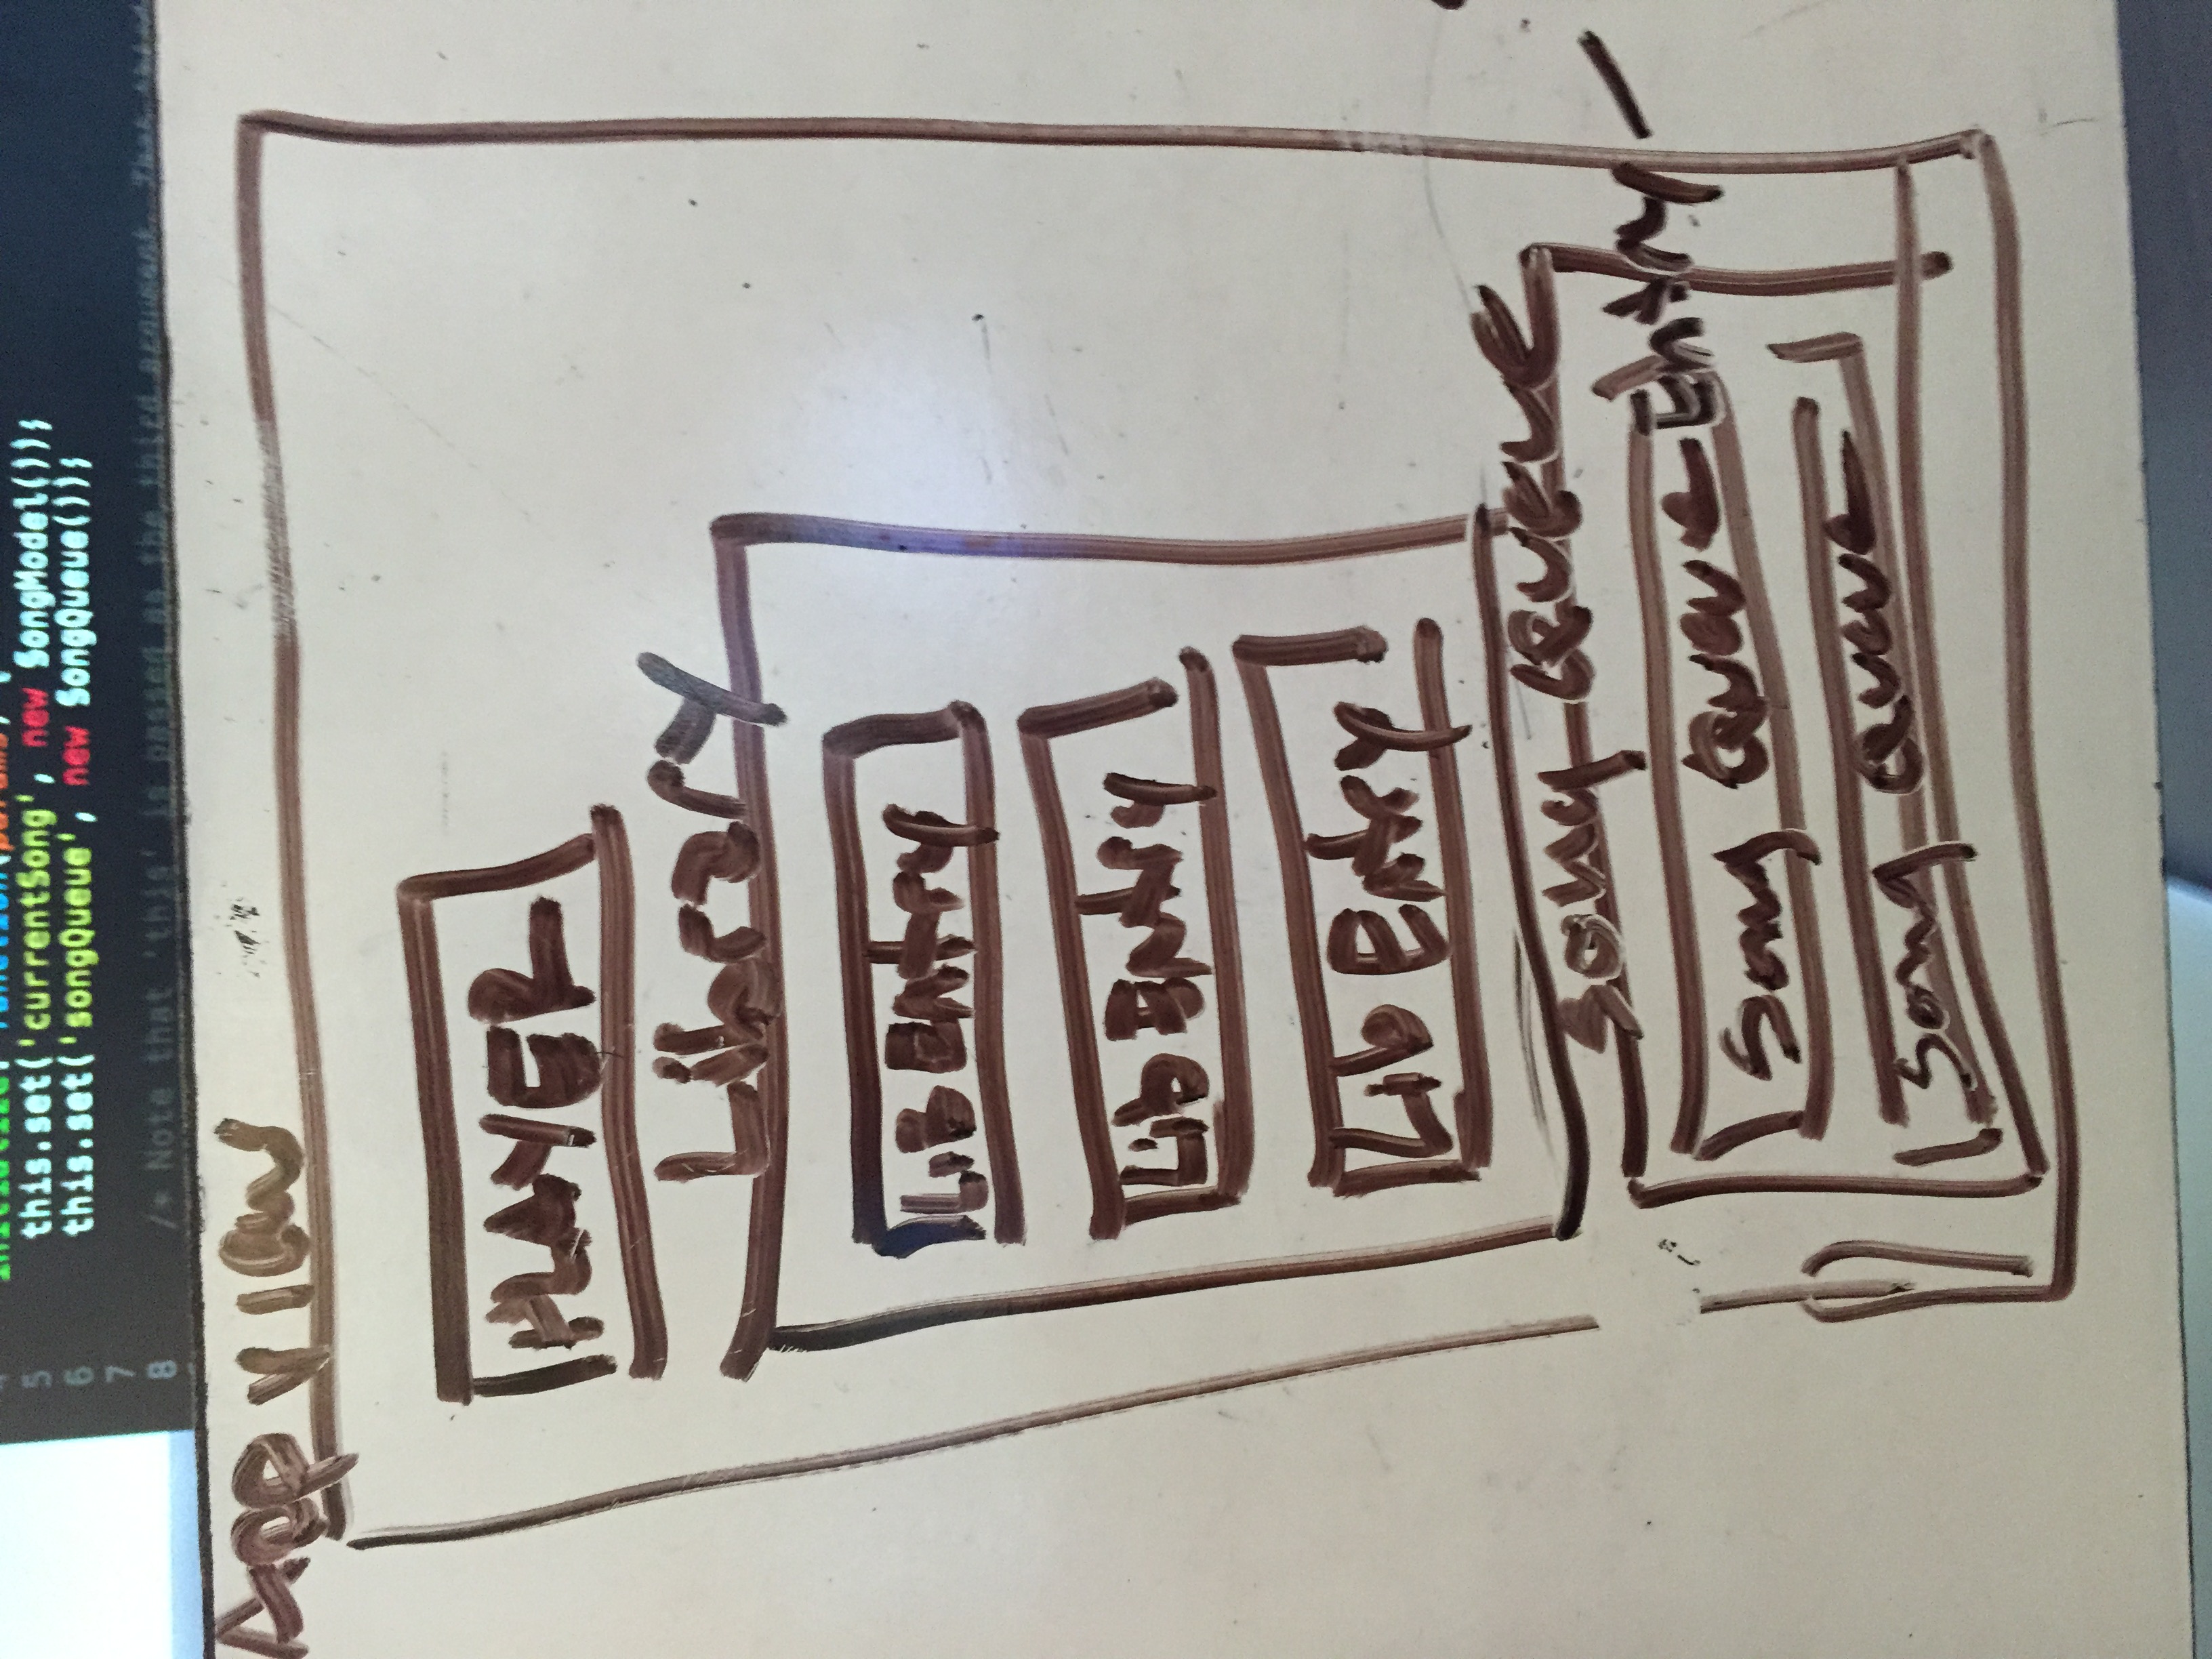 initialize: function(params) {
5 this.set('currentSong', new SongModel());
6 this.set('songQueue', new SongQueue());
7
8 /* Note that 'this' is passed as the third argument. That third
App view
PLAYER
Library
LiB Entry
Lib Entry
Lib Entry
Song Queue
Song Queue Entry
Song Queue